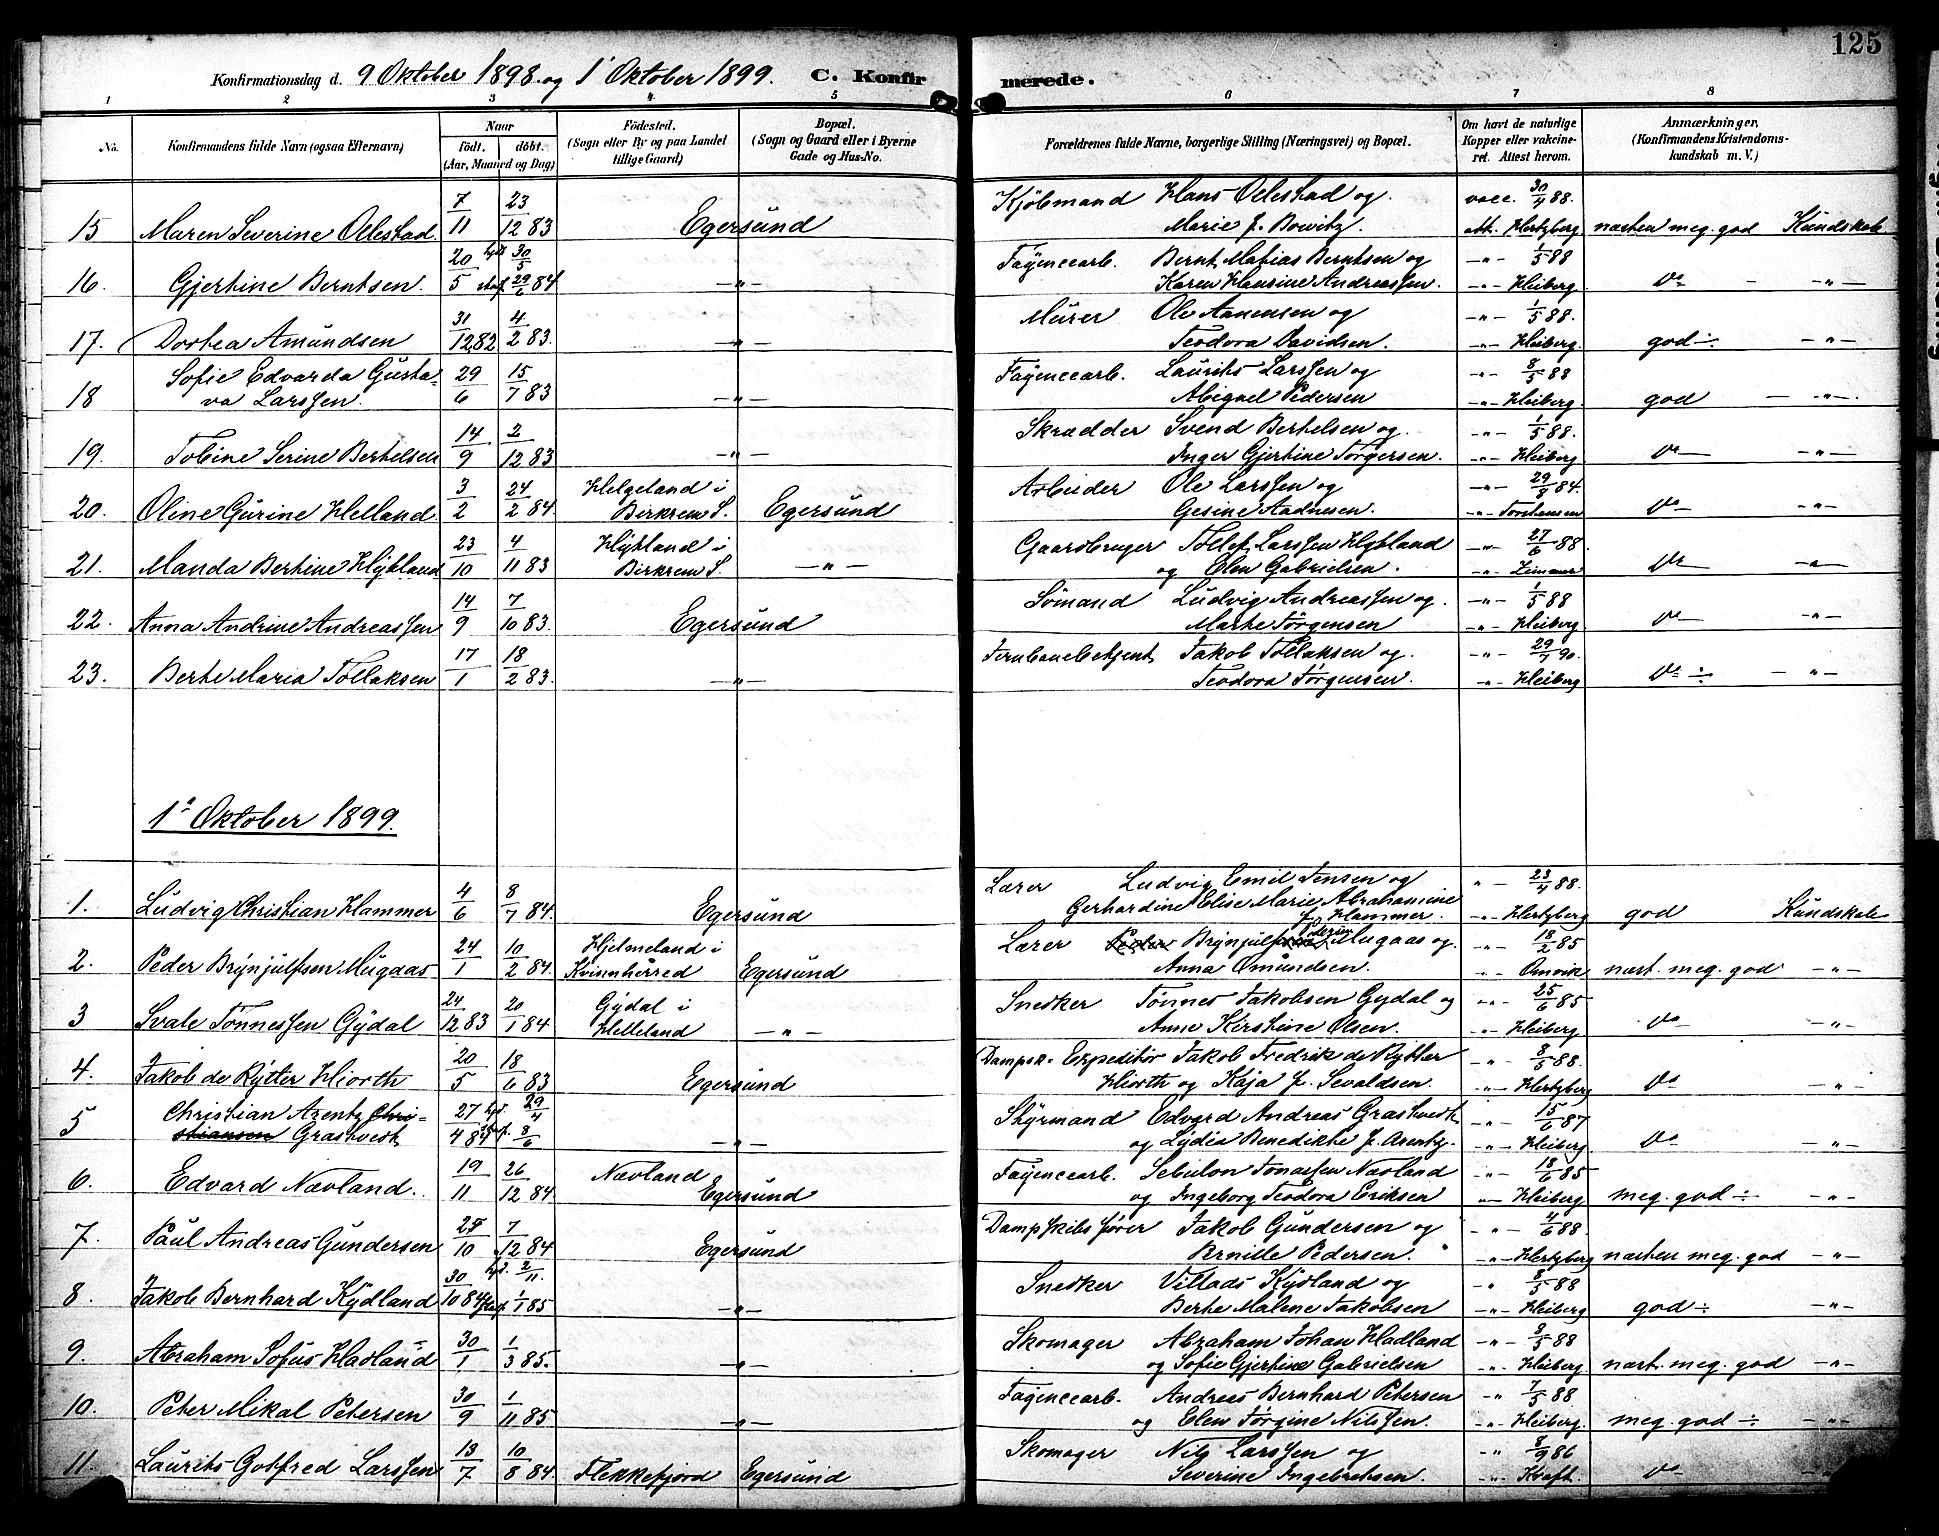 125
Konfirmationsdag d. 9 Oktober 1898 og 1' Oktober 1899. C. Konfirmerede.
1 2 3 4 5 6 7 8
No. Konfirmandens fulde Navn (ogsaa Efternavn) Naar født. døbt. (Aar, Maaned og Dag) Fødested. (Sogn eller By og paa Landet tillige Gaard) Bopæl. (Sogn og Gaard eller i Byerne Gade og Hus-No. Forældrenes fulde Navne, borgerlige Stilling (Næringsvei) og Bopæl. Om havt de naturlige Kopper eller vakcineret. Attest herom. Anmærkninger, (Konfirmandens Kristendomskundskab m. V.)
15 Maren Severine Olestad 7/11 23/12 83 Egersund Kjøbmand Hans Olestad og Marie f. Bowitz. vacc. 30/4 88. att. Hertzberg næsten meg. god Kundskab
16. Gjertine Berntsen. 20/5 30/5 29/6 84 —"— Fayencearb. Bernt Matias Berntsen og Karen Hansine Andreassen. —"— 1/5 88 —"— Heiberg do —"—
17. Dortea Amundsen 31/12 82 4/2 83. —"— Murer Ole Aanensen og Teodora Davidsen. —"— 1/5 88. —"— Heiberg. god ÷ —"—
18 Sofie Edvarda Gustava Larssen. 29/6 15/7 83 —"— Fayencearb. Laurits Larssen og Abigael Pedersen —"— 8/5 88 —"— Heiberg. god —"—
19. Tobine Serine Bertelsen 14/9 2/12 83 —"— Skrædder Svend Bertelsen og Inger Gjertine Tørgersen. —"— 1/5 88. —"— Heiberg do —"—
20. Oline Gurine Helland 3/2 24/2 84 Helgeland i Birkrem S. Egersund Arbeider Ole Larssen og Gesine Aadnesen. —"— 29/8 84. —"— Torstensen do —"—
21. Manda Bertine Hÿtland 23/10 4/11 83 Hÿtland i Birkrem S. —"— Gaardbruger Tollef Larssen Hytland og Elen Gabrielsen. —"— 27/6 88. —"— Zimmer do —"—
22. Anna Andrine Andreassen 14/9 7/10 83. Egersund Sømand Ludvig Andreassen og Marte Tørgensen —"— 1/5 88 —"— Heiberg do —"—
23. Berte Maria Tollaksen 17/1 18/2 83. —"— Jernbanebetjent Jakob Tollaksen og Teodora Tørgensen. —"— 29/7 90. —"— Heiberg do ÷ —"—
1ste Oktober 1899.
1. Ludvig Christian Hammer 4/6 8/7 84. Egersund Lærer Ludvig Emil Jensen og Gerhardine Elise Marie Abrahamine f. Hammer. "— 23/4 88. —"— Hertzberg god Kundskab
2. Peder Brÿnjulfsen Mugaas 24/1 10/2 84. Hjelmeland i Kvinnherred Egersund Lærer Peder Brÿnjulf Mugaas og Anna Omundsen. —"— 18/2 85 —"— Omvik næst. meg. god —"—
3 Svale Tønnessen Gÿdal 24/12 83 20/1 84 Gÿdal i Helleland —"— Snedker Tønnes Jakobsen Gydal og Anne Kirstine Olsen. —"— 25/6 85 —"— Heiberg. do —"—
4. Jakob de Rÿtter Hiorth 20/5 18/6 83 Egersund Dampsk. Expeditør Jakob Fredrik de Rytter Hiorth og Kaja f. Sevaldsen. "— 8/5 88. —"— Hertzberg do —"—
5 Christian Arentz Christiansen Grastvedt 27/4 84 29/4 8/6 —"— Styrmand Edvard Andreas Grastvedt og Lydia Benedikte f. Arentz. —"— 15/6 87 —"— Heiberg do —"—
6. Edvard Nævland. 19/11 26/12 84. Nævland Egersund Fayencearb. Sebulon Jonassen Nævland og Ingeborg Teodora Eriksen —"— 18/6 85 —"— Heiberg meg. god ÷ —"—
7. Paul Andreas Gundersen 25/10 7/12 84 Egersund Dampskibsfører Jakob Gundersen og Pernille Pedersen. "— 4/6 88. —"— Hertzberg næsten meg. god —"—
8. Jakob Bernhard Kÿdland 30/10 84 2/11. 1/1 85 —"— Snedker Villads Kydland og Berte Malene Jakobsen " 8/5 88 —"— Heiberg god ÷ —"—
9. Abraham Sofus Hadland 30/1 1/3 85. —"— Skomager Abraham Johan Hadland og Sofie Gjertine Gabrielsen "— 8/5 88 —"— Heiberg. næst. meg. god —"—
10. Peter Mikal Petersen 30/9 1/11 85 —"— Fayencearb. Andreas Bernhard Petersen og Elen Jørgine Nilssen. " 7/5 88 —"— Heiberg. meg. god ÷ —"—
11. Laurits Gotfred Larssen 13/7 10/8 84 Flekkefjord Egersund Skomager Nils Larssen og Severine Ingebretsen. " 8/9 86 —"— Kraft. do —"—